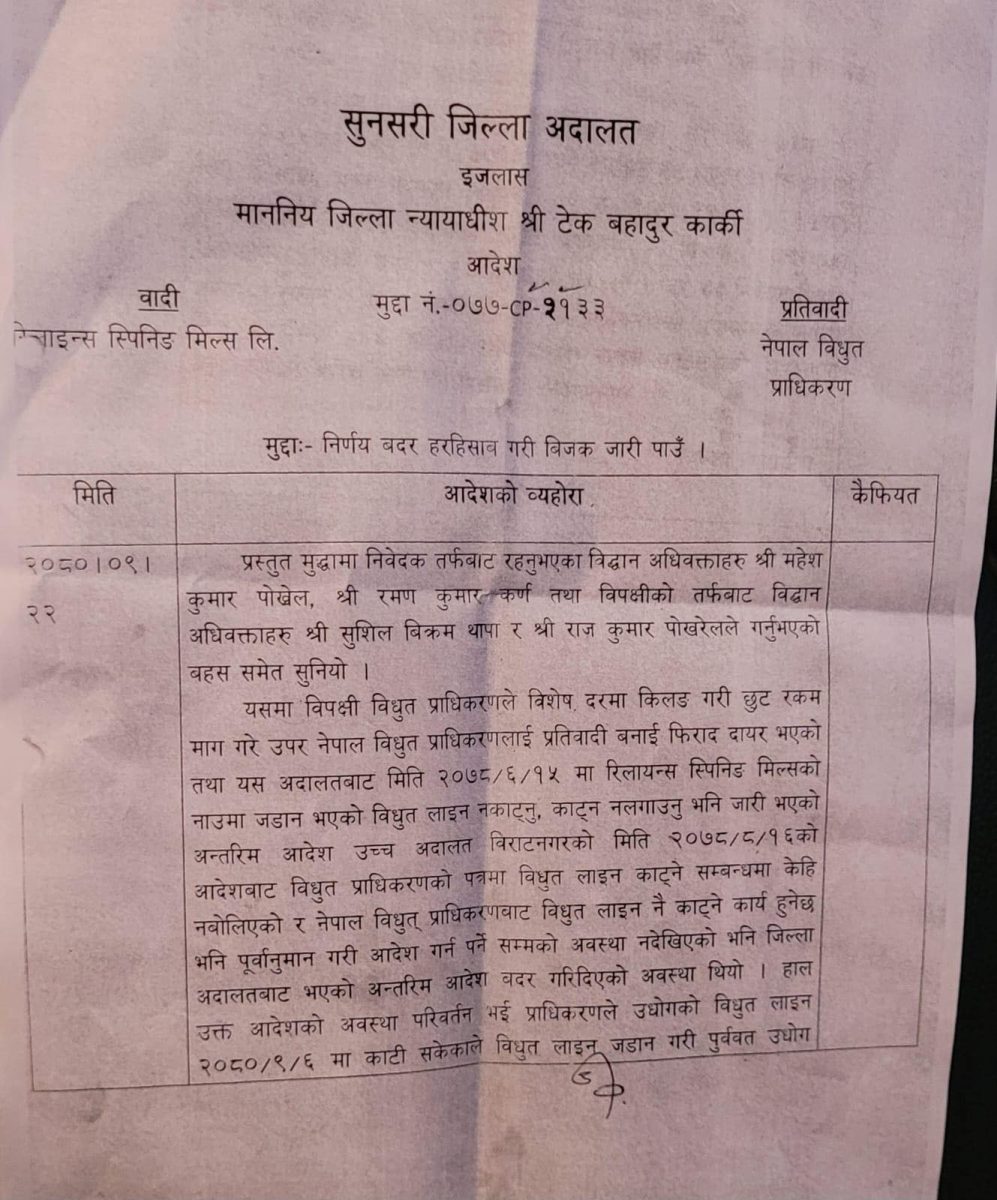 सुनसरी जिल्ला अदालत
इजलास
माननिय जिल्ला न्यायाधीश श्री टेक बहादुर कार्की
आदेश
वादी
मुद्दा नं.-०७७-CP-२१३३
प्रतिवादी
स्पिनिङ मिल्स लि.
नेपाल विधुत
प्राधिकरण
मुद्दाः- निर्णय बदर हरहिसाव गरी बिजक जारी पाउँ ।
मिति
आदेशको व्यहोरा
कैफियत
२०८०।०९।
२२
प्रस्तुत मुद्धामा निवेदक तर्फबाट रहनुभएका विद्वान अधिवक्ताहरु श्री महेश
कुमार पोखेल, श्री रमण कुमार कर्ण तथा विपक्षीको तर्फबाट विद्वान
अधिवक्ताहरु श्री सुशिल बिक्रम थापा र श्री राज कुमार पोखरेलले गर्नुभएको
बहस समेत सुनियो ।
यसमा विपक्षी विधुत प्राधिकरणले विशेष दरमा किलङ गरी छुट रकम
माग गरे उपर नेपाल विधुत प्राधिकरणलाई प्रतिवादी बनाई फिराद दायर भएको
तथा यस अदालतबाट मिति २०७८/६/१५ मा रिलायन्स स्पिनिङ मिल्सको
नाउमा जडान भएको विधुत लाइन नकाट्नु, काट्न नलगाउनु भनि जारी भएको
अन्तरिम आदेश उच्च अदालत विराटनगरको मिति २०७८/८/१६को
आदेशबाट विधुत प्राधिकरणको पत्रमा विधुत लाइन काट्ने सम्बन्धमा केहि
नबोलिएको र नेपाल विधुत् प्राधिकरणबाट विधुत लाइन नै काट्ने कार्य हुनेछ
भनि पूर्वानुमान गरी आदेश गर्न पर्ने सम्मको अवस्था नदेखिएको भनि जिल्ला
अदालतबाट भएको अन्तरिम आदेश बदर गरिदिएको अवस्था थियो । हाल
उक्त आदेशको अवस्था परिवर्तन भई प्राधिकरणले उधोगको विधुत लाइन
२०८०/९/६ मा काटी सकेकाले विधुत लाइन जडान गरी पुर्ववत उधोग